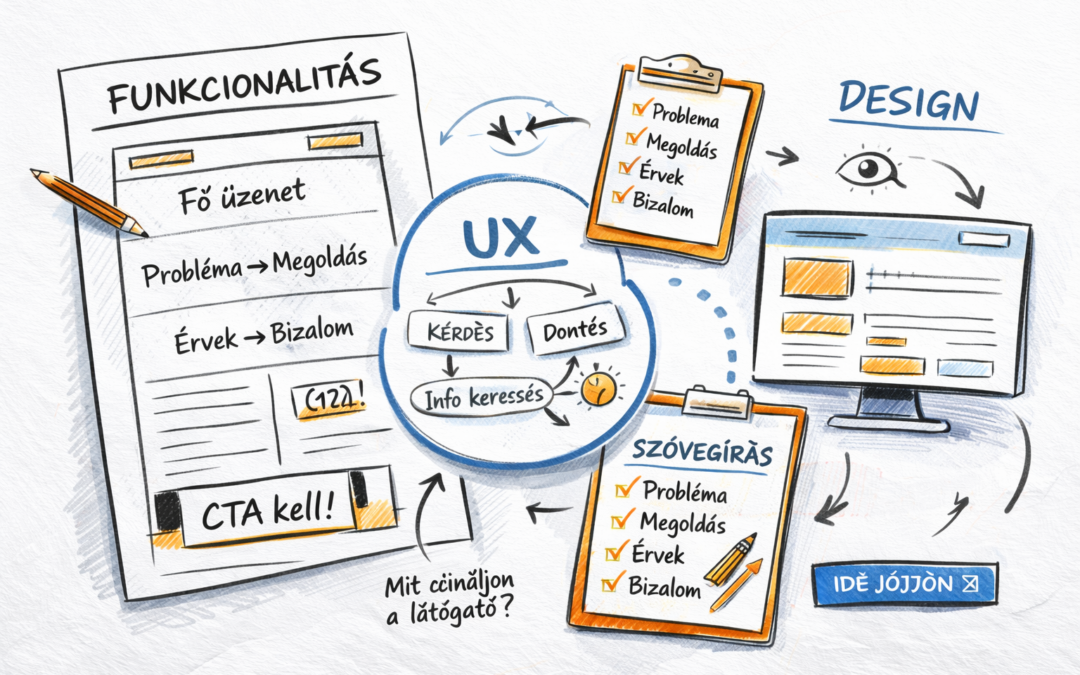 FUNKCIONALITÁS
Fő üzenet
Probléma → Megoldás
Érvek → Bizalom
CTA kell!
UX
KÉRDÈS
Dontés
Info keressés
Mit cċinăljon
a látógató?
Problema
Megoldás
Érvek
Bizalom
SZÓVEGÍRÀS
Probléma
Megoldás
Érvek
Bizalom
DESIGN
IDĚ JÓJJÒN